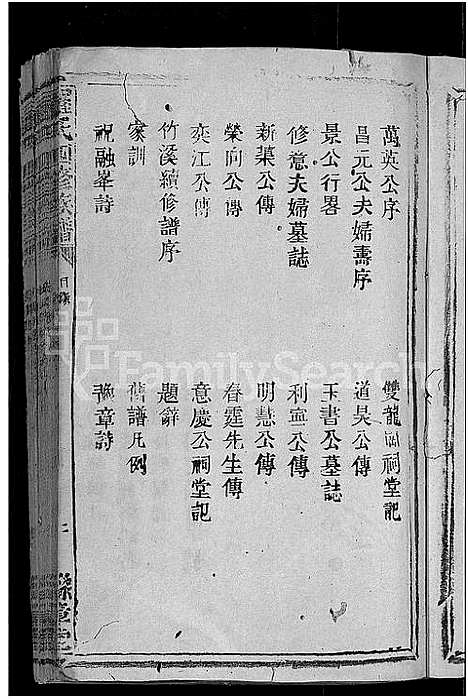 萬英公序
雙龍
祠堂記
昌元公夫婦壽序
道昊公傳
景公行畧
玉書公墓誌
修意夫婦墓誌
利寍公傳
新蕖公傳
明慧公傳
榮向公傳
春霆先生傳
奕江公傳
意慶公祠堂記
竹溪續修譜序
題辭
家訓
舊譜凡例
祝融峯詩
豫章詩
氏四修族譜
目錄
豫章堂
FamilySearch